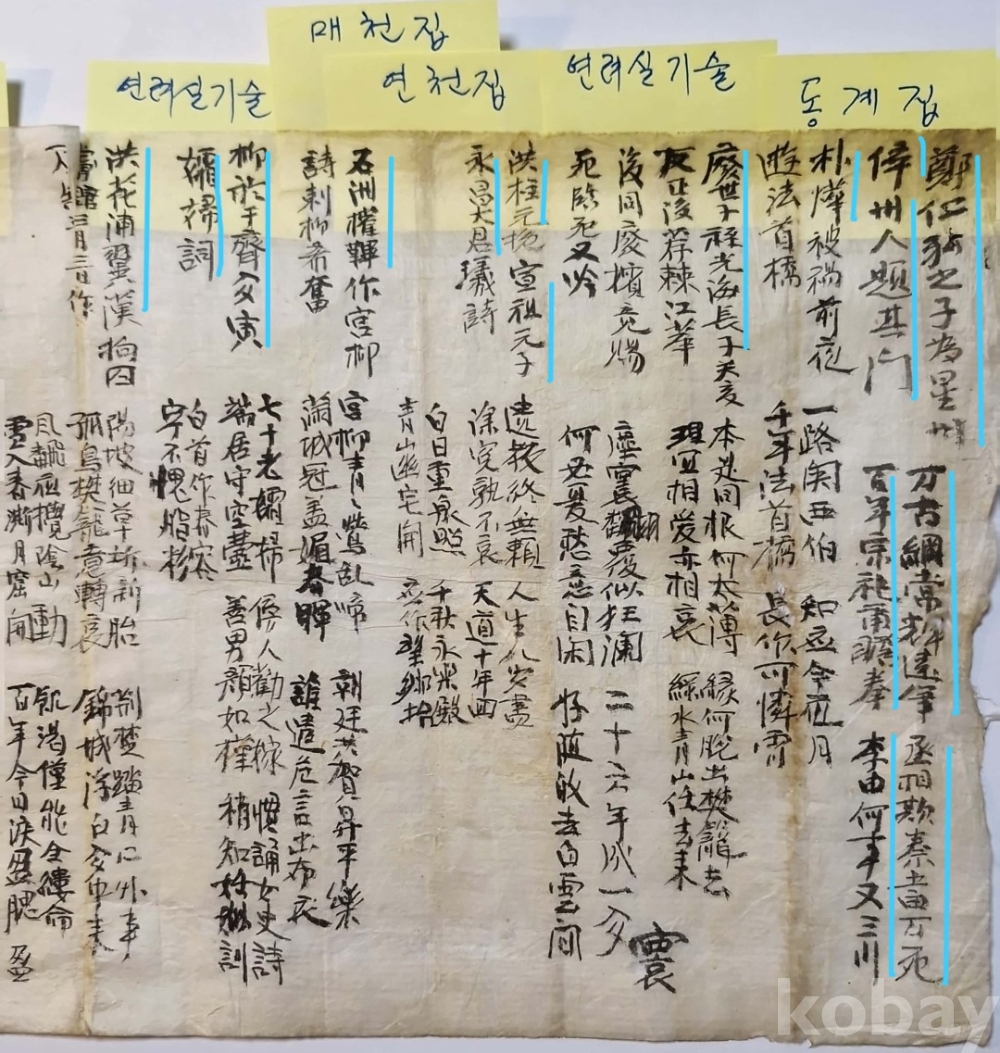 동계집
연려실기술
연천집
매천집
연려실기술
鄭仁弘之子為星州 万古綱常 逆年 丞相欺秦當万死
倅州人題其门 百年宗社甫 李由何事又三川
朴燁被禍前夜 一路関西伯 知應今夜月
遊法首橋 千年法首橋 長作可憐宵
廢世子祬光海長子癸亥 本是同根何太薄 緣何脫出樊籠去
反正後荐棘江華 理宜相愛亦相哀 綠水青山任去来
後同廢嬪竟賜 塵寰翻覆似狂瀾 二十六年成一夢
死臨死又吟 何必憂愁意自闲 好随敀去白雲间
寰
洪柱元挽宣祖元子 遺教終無賴 人生
永昌大君㼁詩 深寃孰不哀 天道十年回
白日重泉照 千秋永楽殿
青山幽宅開
石洲權韠作宮柳 宮柳青々鶯乱啼 朝廷共賀昇平樂
詩刺柳希奮 滿城冠盖媚春暉 誰遣危言出布衣
柳於于齋夢寅 七十老孀婦 傍人勸之嫁 慣誦女史詩
孀婦詞 端居守空壼 善男顔如槿 稍知妊姒訓
白首作春容
宁不愧脂粉
洪花浦翼漢拘囚 陽坡細草拆新胎 荊楚踏青心外事
三月三日作 孤鳥樊籠意轉哀 錦城浮白夢中来
風飜 陰山動 飢渴僅能全縷命
雪入春澌月窟開 百年今日淚盈腮 盈
kobay